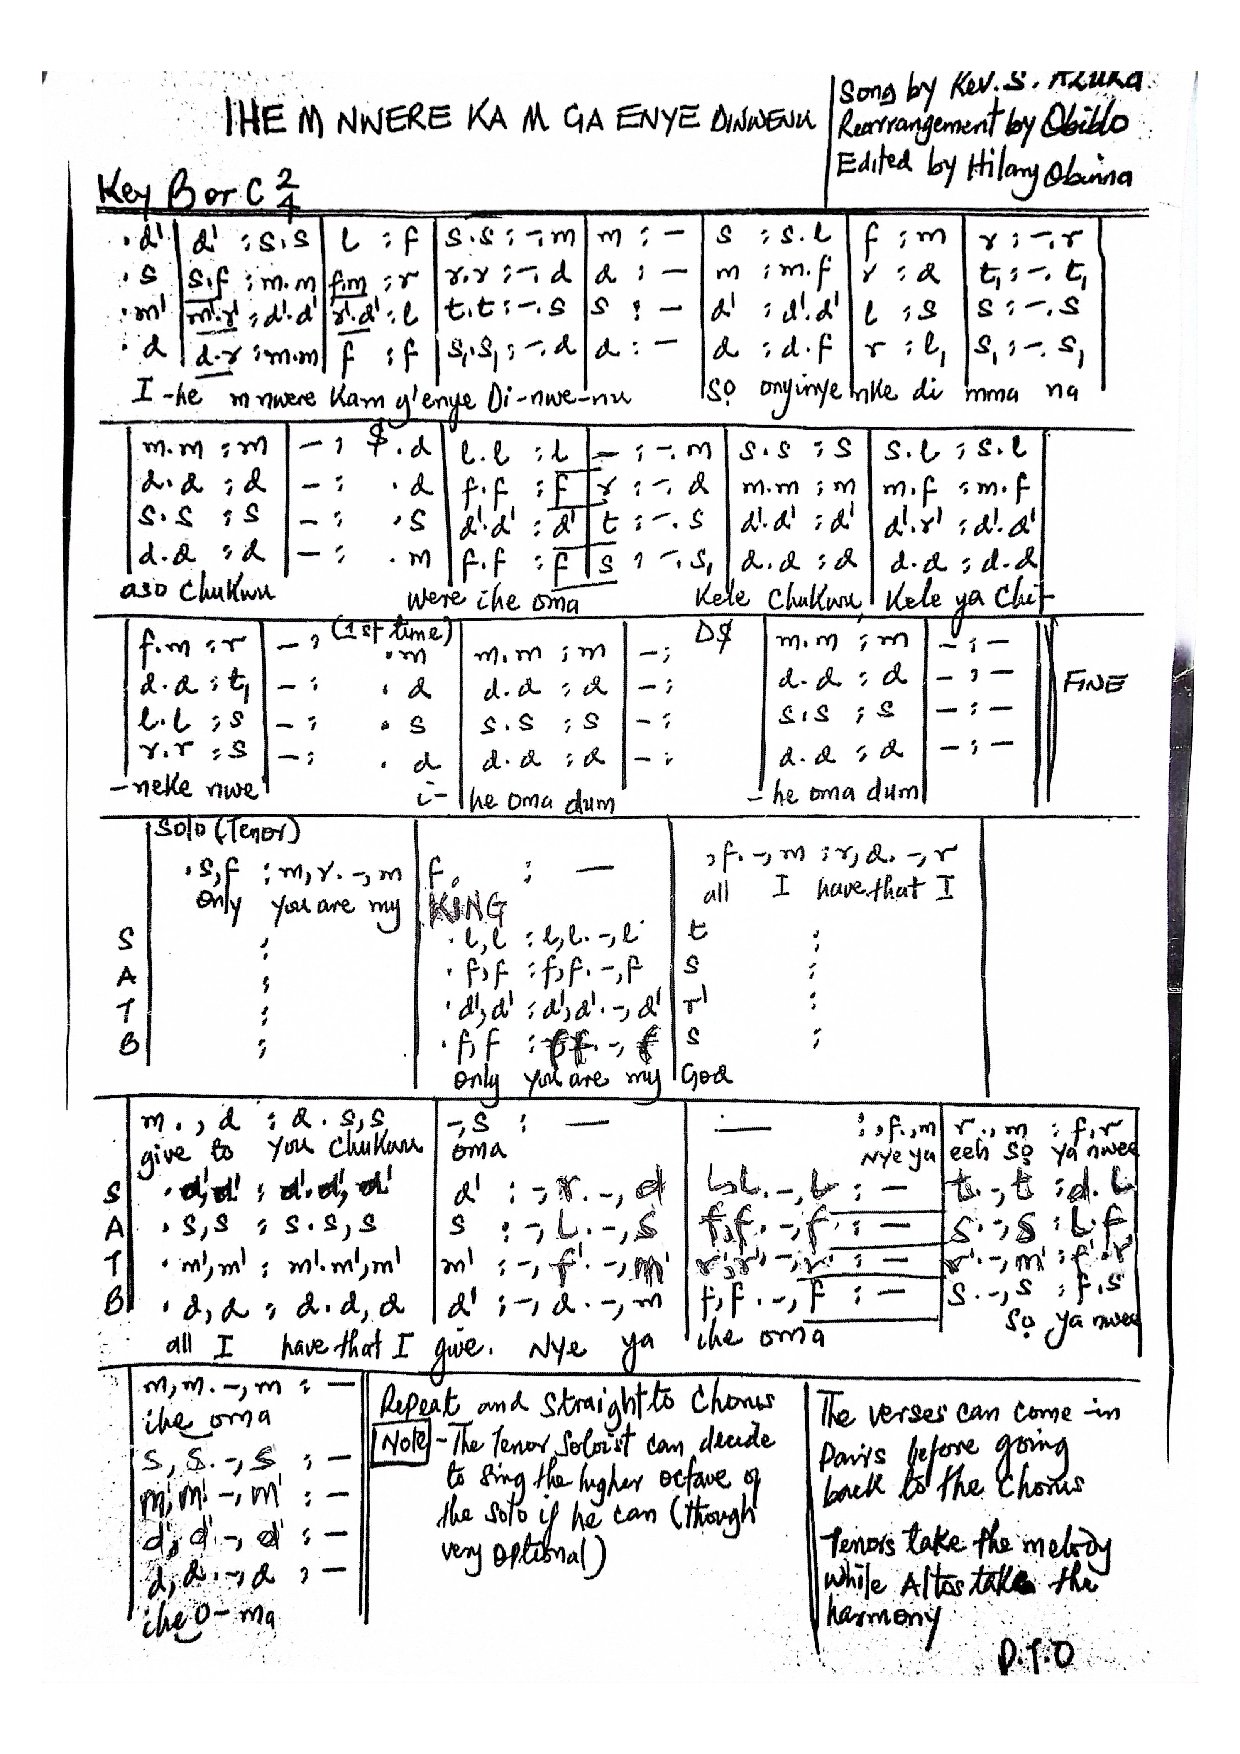 Song by Rev. S. Azuka
IHE M NWERE KA M GA ENYE DINWENU
Rearrangement by Obiblo
Edited by Hilary Obinna
Key B or C 2/4
.d' | d' : s.s | l : f | s.s : -.m | m : - | s : s.l | f : m | r : -.r
.s | s.f : m.m | f.m : r | r.r : -.d | d : - | m : m.f | r : d | t₁ : -.t₁
.m' | m'.r' : d'.d' | r'.d' : l | t.t : -.s | s : - | d' : d'.d' | l : s | s : -.s
.d | d.r : m.m | f : f | s₁.s₁ : -.d | d : - | d : d.f | r : l₁ | s₁ : -.s₁
I -he m nwere Kam g'enye Di-nwe-nu Sọ onyinye nke di mma na
m.m : m | - : $ .d | l.l : l | - : -.m | s.s : s | s.l : s.l
d.d : d | - : .d | f.f : f | r : -.d | m.m : m | m.f : m.f
s.s : s | - : .s | d'.d' : d' | t : -.s | d'.d' : d' | d'.r' : d'.d'
d.d : d | - : .m | f.f : f | s : -.s₁ | d.d : d | d.d : d.d
aso Chukwu were ihe oma Kele Chukwu Kele ya Chi-
(1st time) D$
f.m : r | - : .m | m.m : m | - : | m.m : m | - : -
d.d : t₁ | - : .d | d.d : d | - : | d.d : d | - : - FINE
l.l : s | - : .s | s.s : s | - : | s.s : s | - : -
r.r : s | - : .d | d.d : d | - : | d.d : d | - : -
-neke nwe i- he oma dum -he oma dum
Solo (Tenor)
.s,f : m,r.-,m | f. : - | ,f.-,m : r,d.-,r
Only you are my KING all I have that I
S : | .l,l : l,l.-,l | t :
A : | .f,f : f,f.-,f | s :
T : | .d',d' : d',d'.-,d' | r' :
B : | .f,f : f,f.-,f | s :
Only you are my God
m.,d : d.s,s | -,s : - | - : ,f.,m | r.,m : f,r
give to you Chukwu oma Nye ya eeh sọ ya nwee
S .d',d' : d'.d',d' | d' : -,r.-,d | l,l.-,l : - | t.-,t : d.l
A .s,s : s.s,s | s : -,l.-,s | f,f.-,f : - | s.-,s : l.f
T .m',m' : m'.m',m' | m' : -,f'.-,m' | r',r'.-,r' : - | r'.-,m' : f'.r'
B .d,d : d.d,d | d' : -,d.-,m | f,f.-,f : - | s.-,s : f.s
all I have that I give. Nye ya ihe oma so ya nwee
m,m.-,m : -
ihe oma
s,s.-,s : -
m',m'.-,m' : -
d',d'.-,d' : -
d,d.-,d : -
ihe o-ma
Repeat and straight to Chorus
Note - The Tenor Soloist can decide
to sing the higher octave of
the solo if he can (though
very optional)
The verses can come-in
Pairs before going
back to the Chorus
Tenors take the melody
while Altos take the
harmony
P.T.O